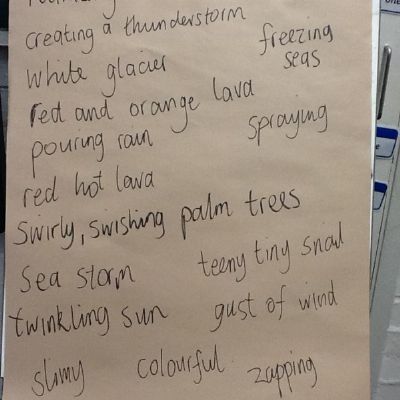 creating a thunderstorm
freezing
seas
white glacier
red and orange lava
pouring rain
spraying
red hot lava
swirly, swishing palm trees
sea storm
teeny tiny snail
twinkling sun
gust of wind
slimy
colourful
zapping